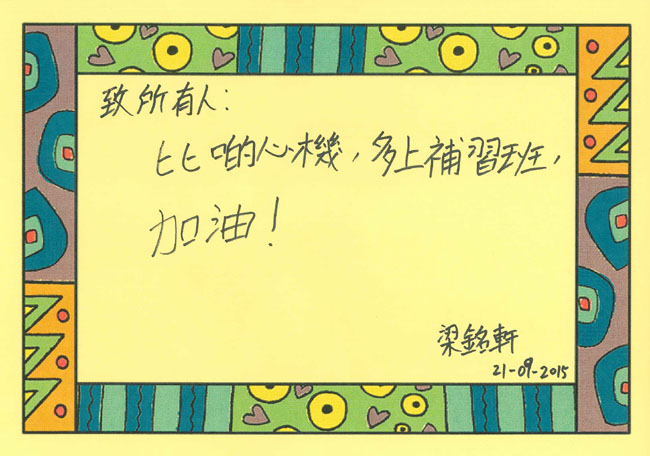 致所有人：
比啲心機，多上補習班，
加油！
梁銘軒
21-09-2015